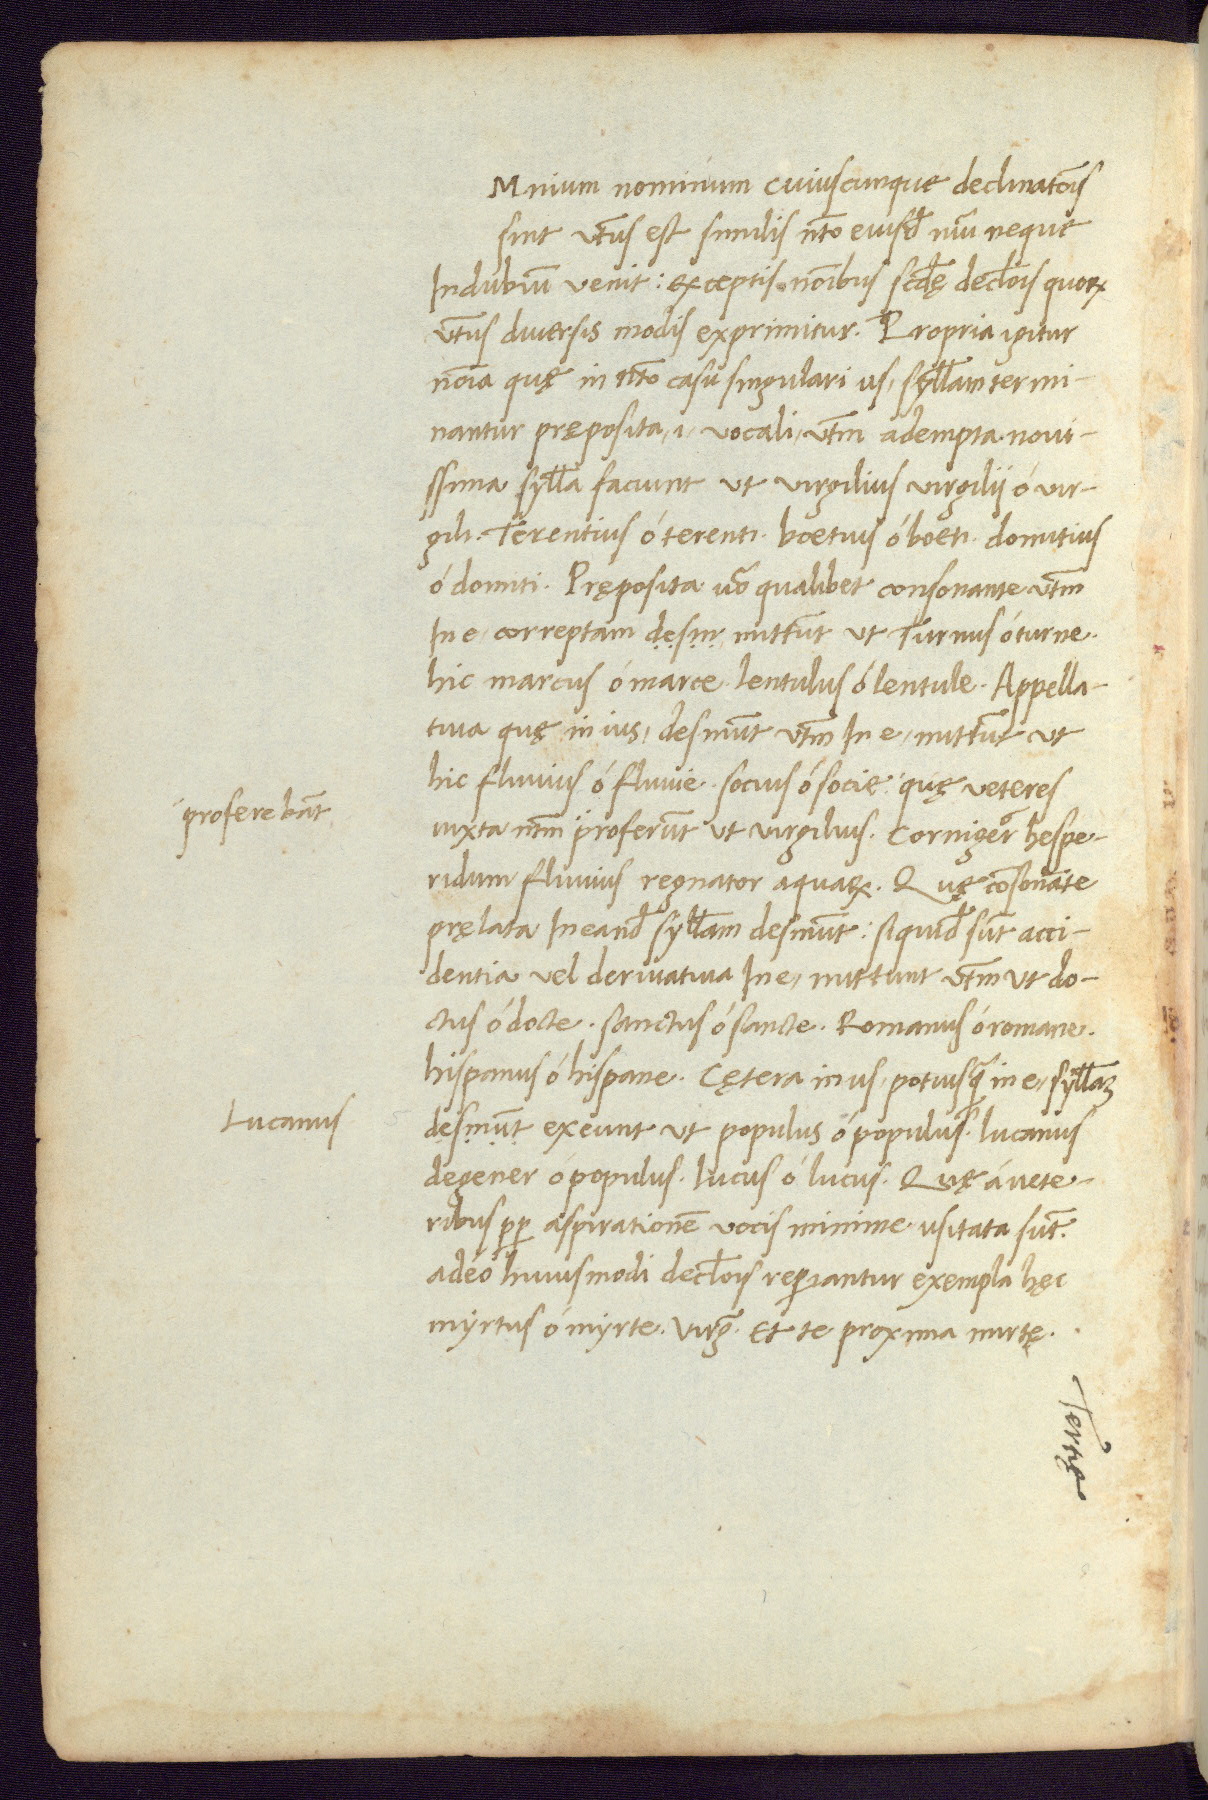 Mnium nominum cuiuscunque declinatōis
sint vt̄us est similis nt̄o eiusđ nūi neque
In dubiū venit: exceptis noībus scđę declōis quoꝝ
vt̄us diuersis modis exprimitur. Propria igitur
noīa quę in nt̄o casu singulari us, syłłam termi-
nantur pręposita, i, vocali, vt̄m adempta noui-
ssima syłła faciunt ut virgilius virgilii ó vir-
gili. Terentius ó terenti. boetius ó boeti. domitius
ó domiti. Pręposita ūo qualibet consonante vt̄m
In e, correptam dẹṣịṇ mittūt ut Turnus ó turne.
hic marcus ó marce. lentulus ó lentule. Appella-
tiua quę in ius, desinūt vt̄m In e, mittūt ut
hic fluuius ó fluuie. socius ó socie: quę veteres
iuxta nt̄m proferūt ut virgilius. Corniger hespe-
ridum fluuius regnator aquaꝝ. Quę cōsonāte
pręlata In eanđ syłłam desinūt: siquiđ sūt acci-
dentia vel deriuatiua In e, mittunt vt̄m ut do-
ctus ó docte. sanctus ó sancte. Romanus ó romane.
hispanus ó hispane. Cętera in us, potiusq̄ in e, syłłaꝫ
dẹṣịṇụ̄ṭ exeunt ut populus ó populus. lucanus
degener ó populus. lucus ó lucus. Quę á uete-
ribus ꝓꝑ aspirationē vocis minime usitata sūt.
adeó huiusmodi declōis reꝑiantur exempla hęc
myrtus ó myrte. virḡ. Et te proxima mirtę.
proferebāt
Lucanus